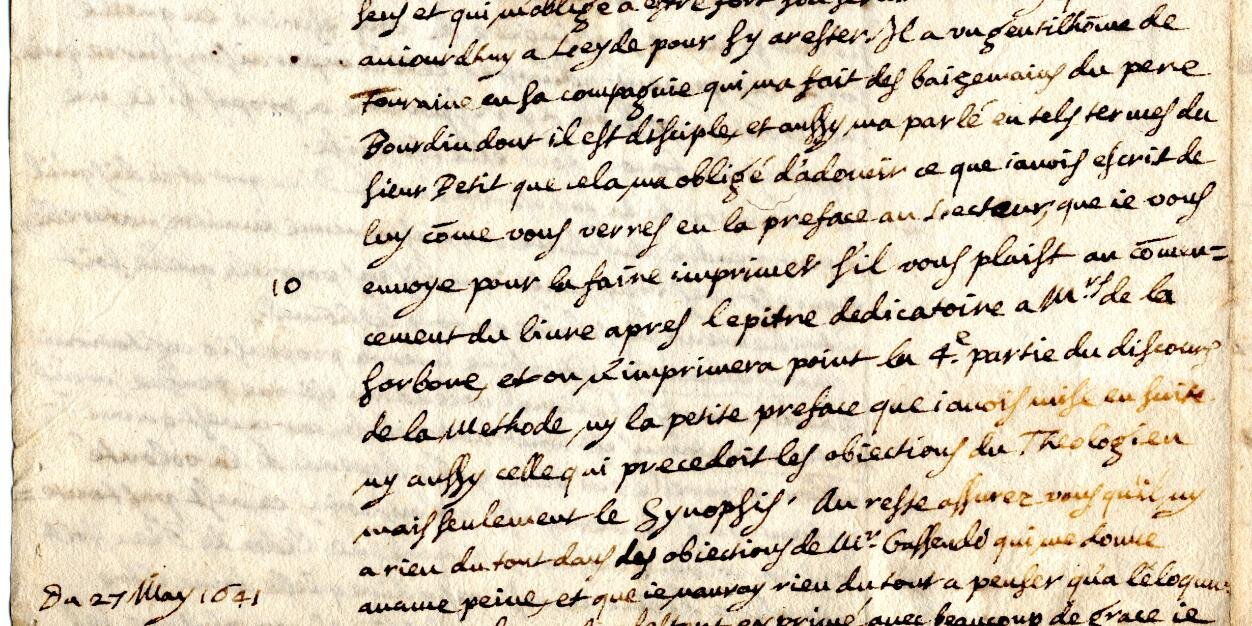 sens et qui m'oblige a estre fort
aujourdhuy a Leyde pour sy arester. Il a un gentilhōme de
Touraine en sa compagnie qui ma fait des baizemains du pere
Bourdin dont il est disciple, et aussy ma parlé en tels termes du
sieur Petit que cela ma obligé d'adoucir ce que iavois escrit de
luy cōme vous verres en la preface au Lecteur, que ie vous
10 envoye pour la faire imprimer s'il vous plaist au cōmen=
cement du livre apres lepitre dedicatoire a Mrs de la
sorbone, et on n'imprimera point la 4e partie du discours
de la Methode ny la petite preface que iavois mise en suite
ny aussy celle qui precedoit les obiections du Theologien
mais seulement le Synopsis. Au reste assurez vous qu'il ny
a rien du tout dans les obiections de Mr Gassendi qui me donne
Du 27 May 1641 aucune peine, et que ie nauray rien du tout a penser qua leloquen=
exprimé avec beaucoup de grace ie